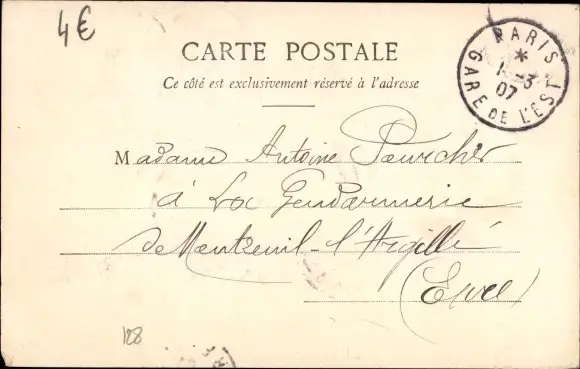 4€
CARTE POSTALE
Ce côté est exclusivement réservé à l'adresse
PARIS
*
1-3
07
GARE DE L'EST
Madame Antoine Pourcher
à La Gendarmerie
de Montreuil-l'Argillé
(Eure)
128